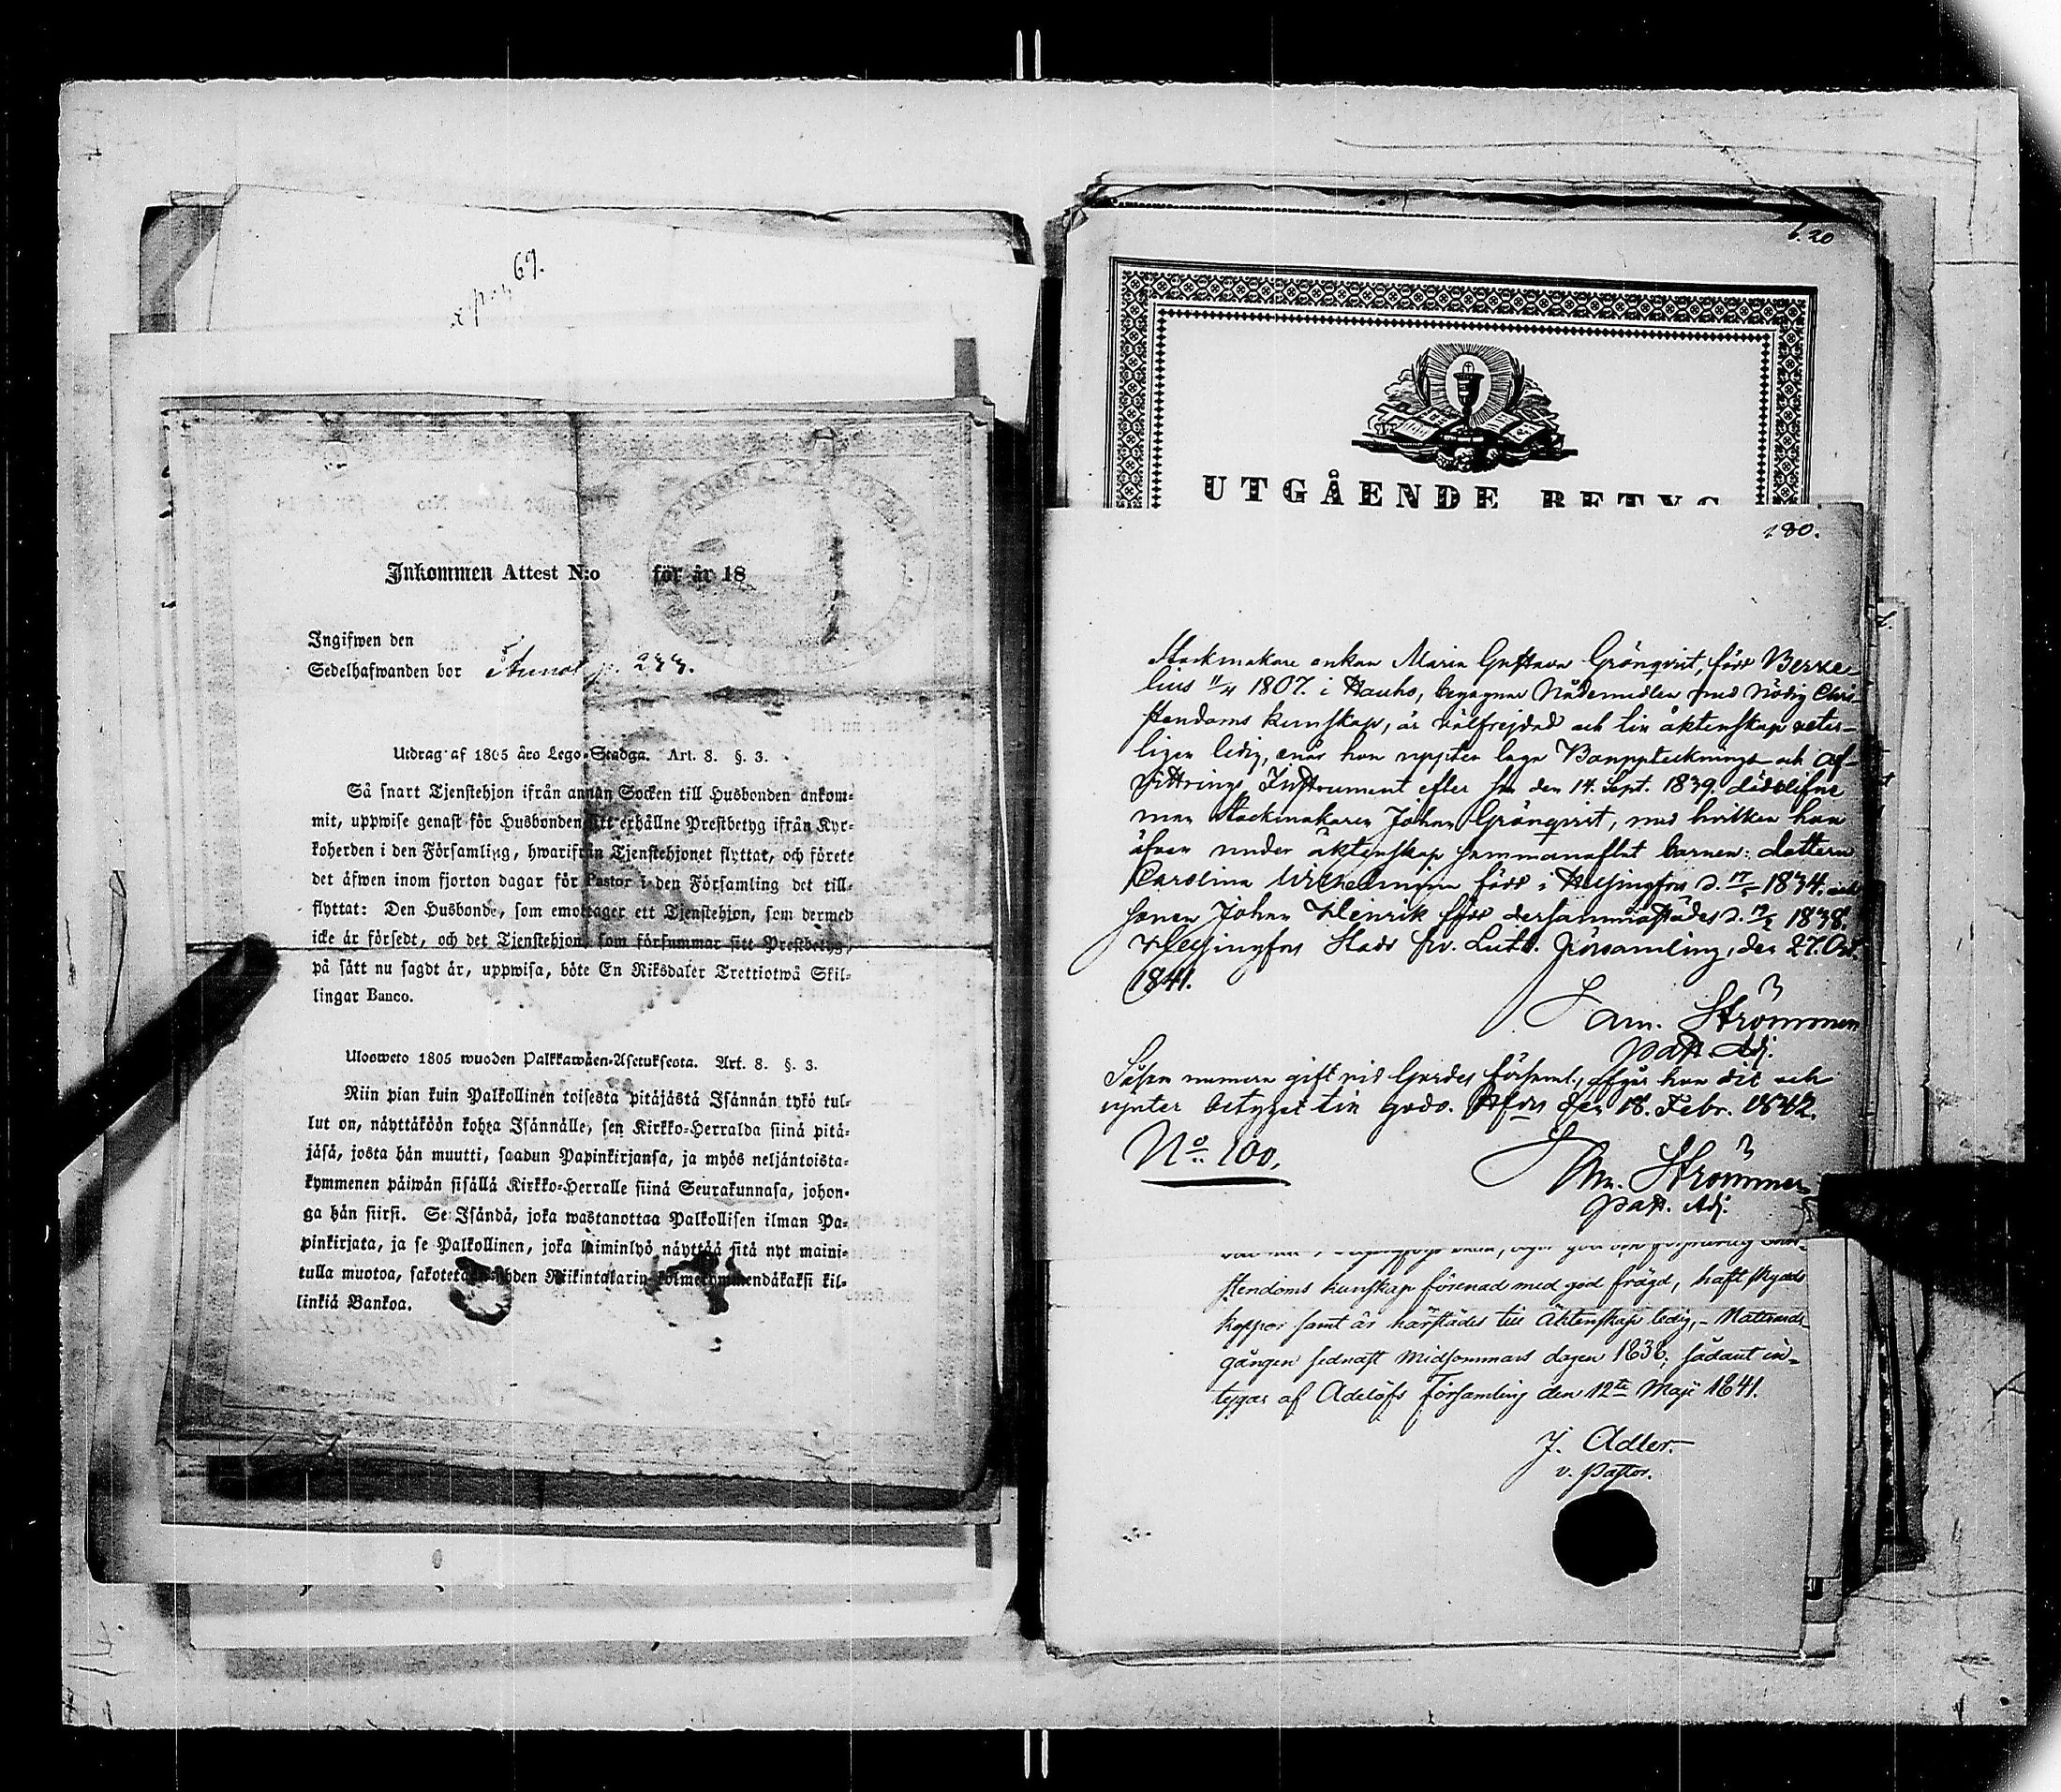 69.
Inkommen Attest N:o för år 18
Ingifwen den
Sedelhafwanden bor
Utdrag af 1805 års Lego-Stadga. Art. 8. §. 3.
Så snart Tjenstehjon ifrån annan Socken till Husbonden ankom-
mit, uppwise genast för Husbonden sitt erhållne Prestbetyg ifrån Kyr-
koherden i den Församling, hwarifrån Tjenstehjonet flyttat, och förete
det äfwen inom fjorton dagar för Pastor i den Församling det till-
flyttat: Den Husbonde, som emottager ett Tjenstehjon, som dermed
icke är försedt, och det Tjenstehjon, som försummar sitt Prestbetyg,
på sätt nu sagdt är, uppwisa, böte En Riksdaler Trettiotwå Skil-
lingar Banco.
Ulosweto 1805 wuoden Palkkawäen-Asetuksesta. Art. 8. §. 3.
Niin pian kuin Palkollinen toisesta pitäjästä Isännän tykö tul-
lut on, näyttäköön kohta Isännälle, sen Kirkko-Herralda siinä pitä-
jäsä, josta hän muutti, saadun Papinkirjansa, ja myös neljäntoista-
kymmenen päiwän sisällä Kirkko-Herralle siinä Seurakunnasa, johon-
ga hän siirsi. Se Isändä, joka wastanottaa Palkollisen ilman Pa-
pinkirjata, ja se Palkollinen, joka laiminlyö näyttää sitä nyt maini-
tulla muotoa, sakotetaan yhden Riikintalarin kolmekymmendäkaksi kil-
linkiä Bankoa.
6.20
UTGÅENDE BETYG
180.
Stockmakare enkan Maria Gustava Grönqvist, född Berze-
lius 11/4 1807. i Hauho, begagnar Nådemedlen med nödig Chri-
stendoms kunskap, är välfrejdad och till äktenskap veter-
ligen ledig, enär hon uppter laga Bouppteknings och Af-
vittrings Instrument efter sin den 14. Sept. 1839. dödblifne
man Stockmakaren Johan Grönqvist, med hvilken hon
äfven under äktenskap sammanaflat barnen: dottern
Carolina Wilhelmina född i Helsingfors d. 1834. och
sonen Johan Henrik född dersammastädes d. 1838.
Helsingfors Stads Ev. Luth. Församling, den 27. Oct.
1841.
Sam. Strömmer
Past. Adj.
Såsom numera gift vid Gardes församl., afgår hon dit och
njuter betyget till godo. H:fors den 18. Febr. 1842.
Strömmer
Past. Adj.
No. 100.
stendoms kunskap förenad med god frägd, haft skydds
koppor samt är härstädes till Äktenskap ledig, - Nattvards-
gången sednast Midsommars dagen 1838, sådant in-
tygar af Adelöfs Församling den 12te Maji 1841.
J. Adler.
v. Pastor.